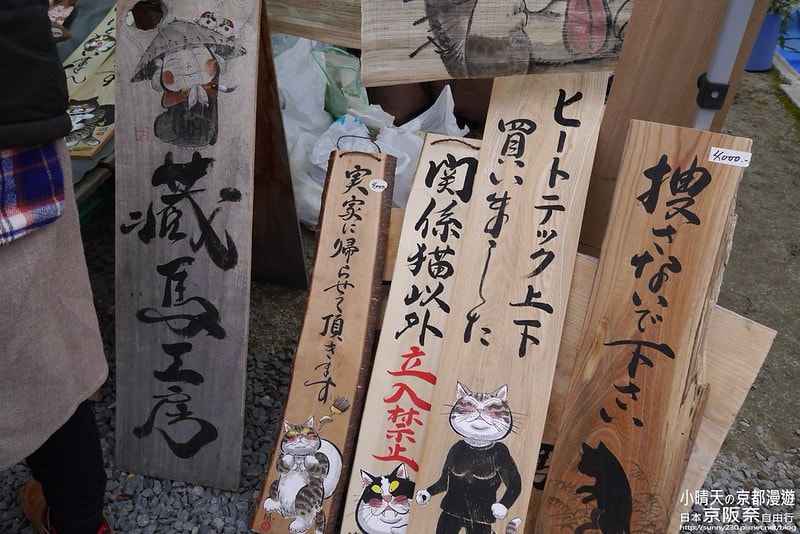 蔵馬工房
実家に帰らせて頂きます
4000
関係猫以外
立入禁止
ヒートテック上下
買いました
捜さないで下さい
4.000-
小晴天の京都漫遊
日本京阪奈自由行
http://sunny230.pixnet.net/blog